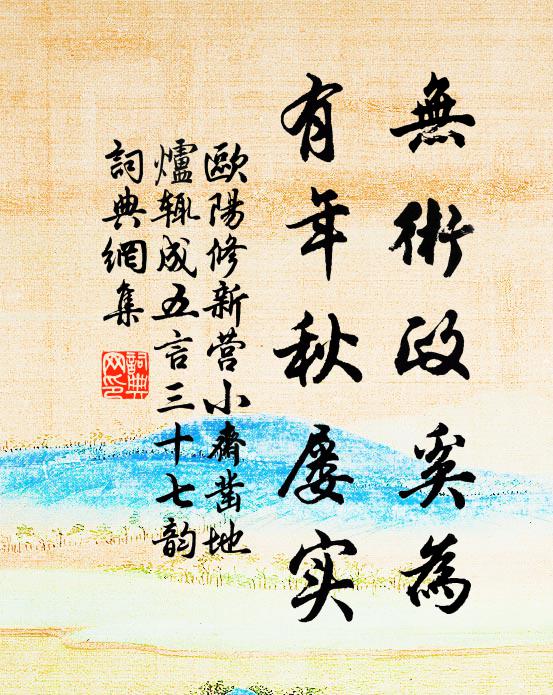 無術政奚為
有年秋屡实
歐陽修新营小齋凿地
爐辄成五言三十七韵
詞典網集
詞典
网印